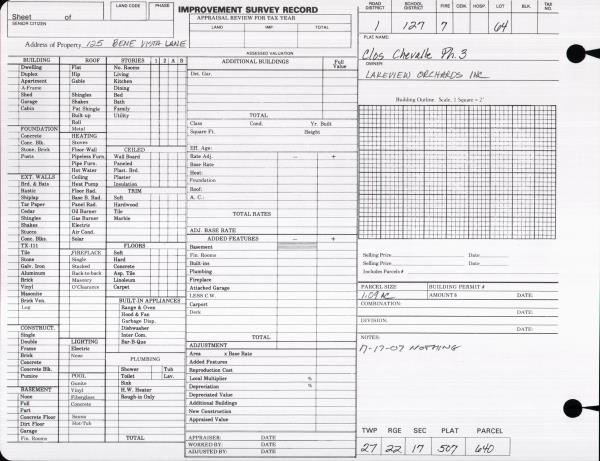 Sheet of
SENIOR CITIZEN
LAND CODE PHASE
IMPROVEMENT SURVEY RECORD
APPRAISAL REVIEW FOR TAX YEAR
LAND IMP. TOTAL
Address of Property 125 BENE VISTA LANE
ROAD DISTRICT SCHOOL DISTRICT FIRE CEM. HOSP. LOT BLK. TAX NO.
1 127 7 64
PLAT NAME:
Clos Chevalle Ph. 3
OWNER
LAKEVIEW ORCHARDS INC
Building Outline: Scale, 1 Square = 2'
ASSESSED VALUATION
BUILDING ROOF STORIES 1 2 A B
Dwelling Flat No. Rooms
Duplex Hip Living
Apartment Gable Kitchen
A-Frame Dining
Shed Shingles Bed
Garage Shakes Bath
Cabin Pat Shingle Family
Built-up Utility
Roll
FOUNDATION Metal
Concrete HEATING
Conc. Blk. Stoves CEILED
Stone, Brick Floor-Wall Wall Board
Posts Pipeless Furn. Paneled
Pipe Furn. Plast. Brd.
Hot Water Plaster
EXT. WALLS Ceiling Insulation
Brd. & Bats Heat Pump TRIM
Rustic Floor Rad. Soft
Shiplap Base B. Rad. Hardwood
Tar Paper Panel Rad. Tile
Cedar Oil Burner Marble
Shingles Gas Burner
Shakes Electric
Stucco Air Cond.
Conc. Blks. Solar
TX-111 FLOORS
Tile FIREPLACE Soft
Stone Single Hard
Galv. Iron Stacked Concrete
Aluminum Back-to-back Asp. Tile
Brick Masonry Linoleum
Vinyl O'Clearance Carpet
Masonite
Brick Ven. BUILT-IN APPLIANCES
Log Range & Oven
Hood & Fan
Garbage Disp.
CONSTRUCT. Dishwasher
Single Inter Com.
Double LIGHTING Bar-B-Que
Frame Electric
Brick None PLUMBING
Concrete Shower Tub
Concrete Blk. Toilet Lav.
Pumice POOL Sink
Gunite H.W. Heater
BASEMENT Vinyl Rough-in Only
None Fiberglass
Full Concrete
Part
Concrete Floor Sauna
Dirt Floor Hot-Tub
Garage
Fin. Rooms TOTAL
ADDITIONAL BUILDINGS Full Value
Det. Gar.
TOTAL
Class Cond. Yr. Built
Square Ft. Height
Eff. Age:
Rate Adj. − +
Base Rate
Heat:
Foundation
Roof:
A. C.:
TOTAL RATES
ADJ. BASE RATE
ADDED FEATURES − +
Basement
Fin. Rooms
Built-ins
Plumbing
Fireplace
Attached Garage
LESS C.W.
Carport
Deck
TOTAL
ADJUSTMENT
Area x Base Rate
Added Features
Reproduction Cost
Local Multiplier %
Depreciation %
Depreciated Value
Additional Buildings
New Construction
Appraised Value
APPRAISER: DATE
WORKED BY: DATE
ADJUSTED BY: DATE
Selling Price Date
Selling Price Date
Includes Parcels #
PARCEL SIZE BUILDING PERMIT #
1.09 AC AMOUNT $ DATE:
COMBINATION: DATE:
DIVISION: DATE:
NOTES:
NOTHING
TWP RGE SEC PLAT PARCEL
27 22 17 507 640